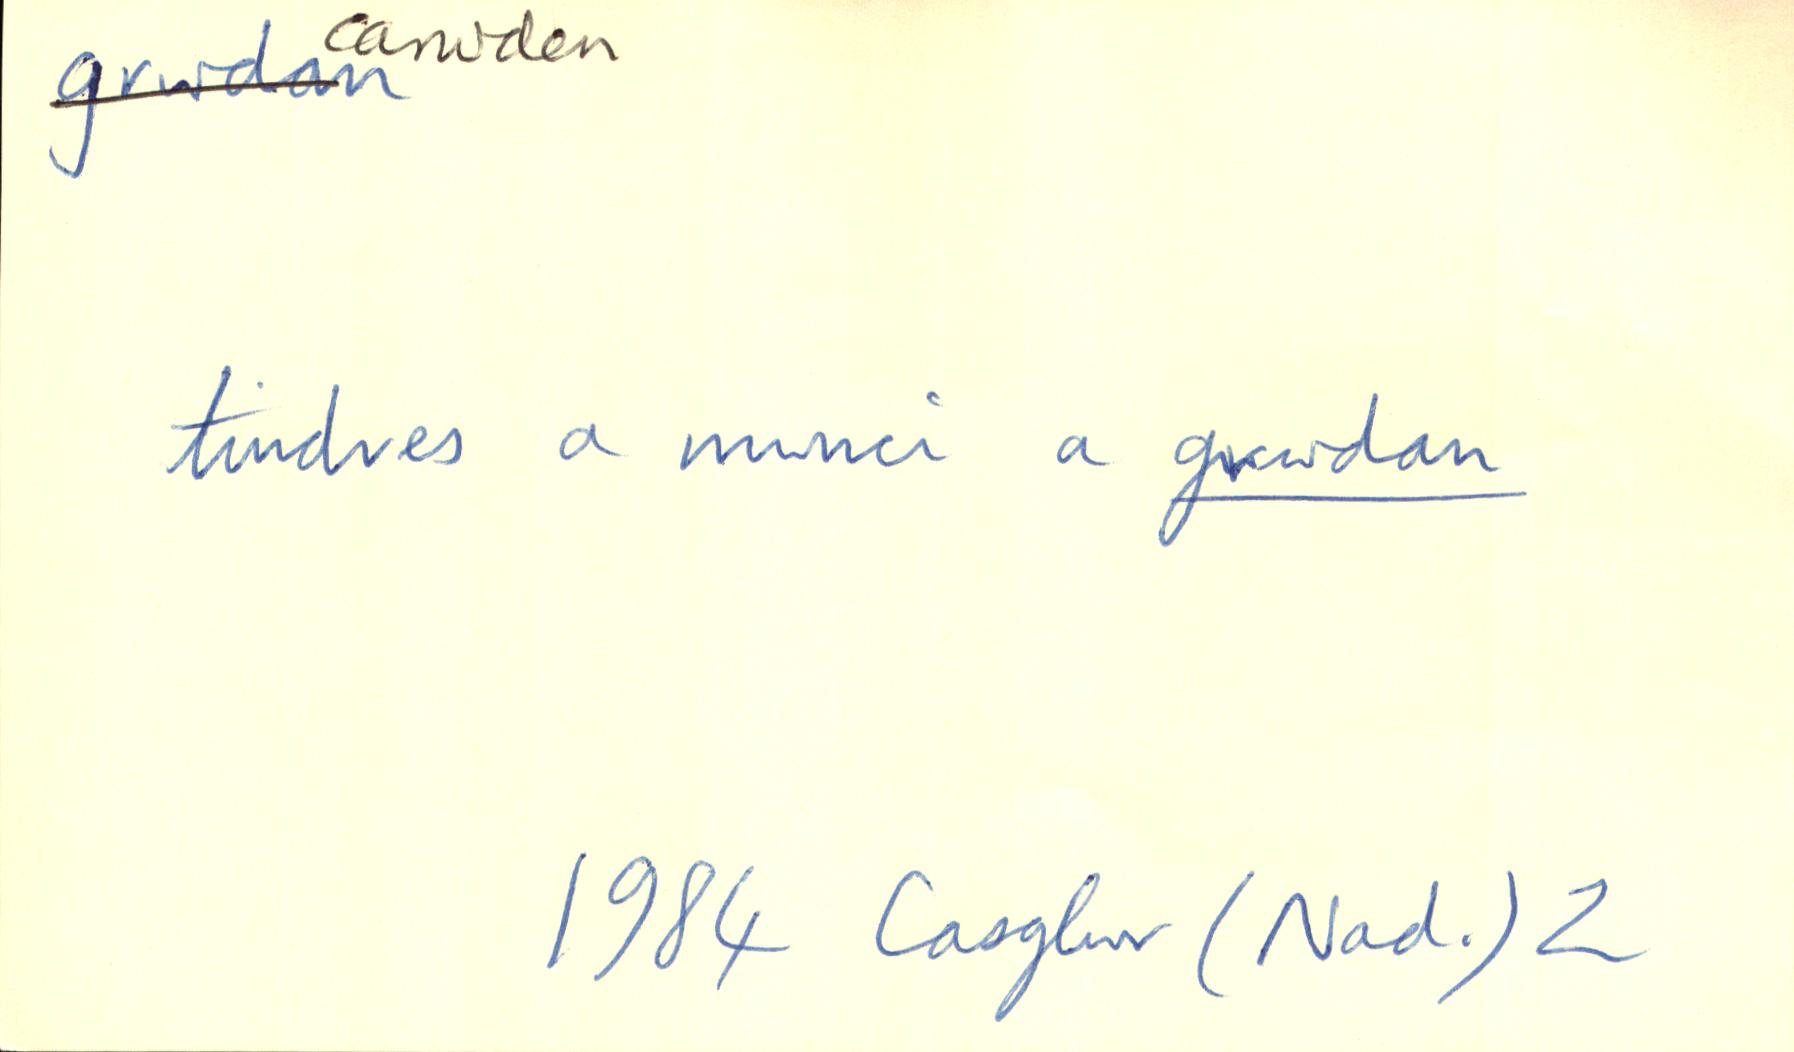 grwdan carwden
tindres a mwnci a grwdan
1984 Casglwr (Nad.) 2